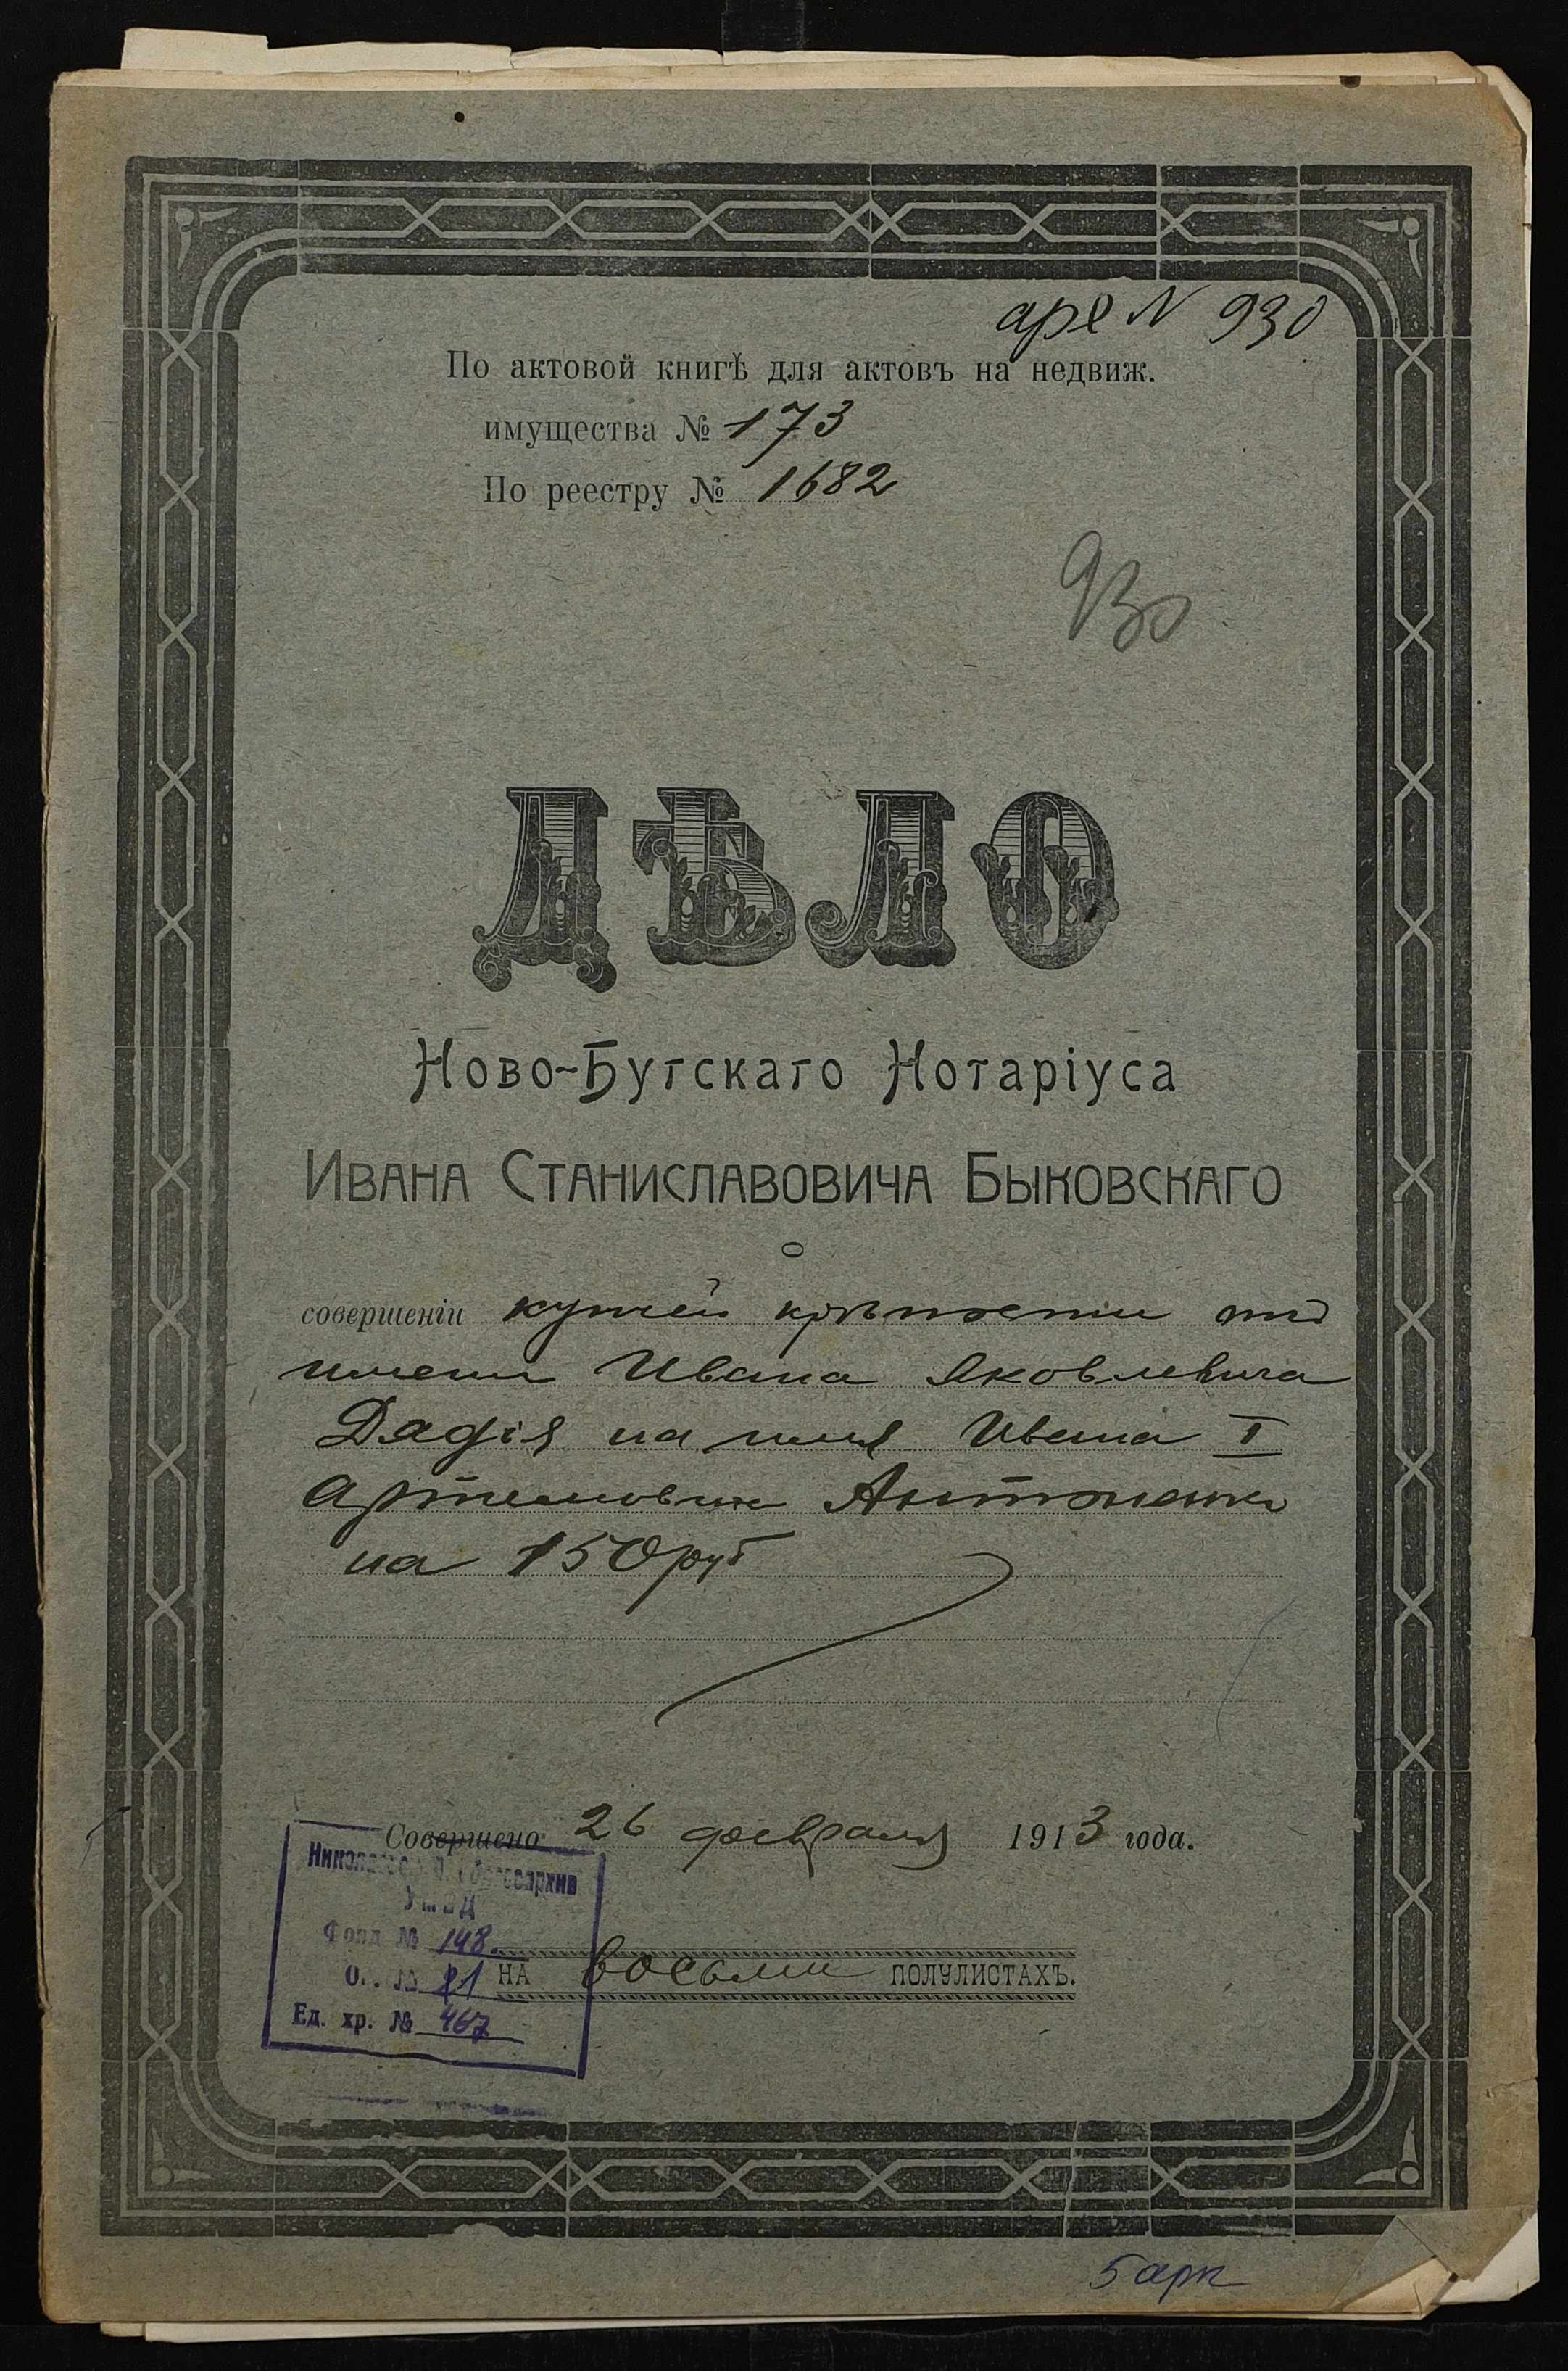 арх N 930
По актовой книгѣ для актовъ на недвиж.
имущества № 173
По реестру № 1682
930
ДѢЛО
Ново-Бугскаго Нотаріуса
Ивана Станиславовича Быковскаго
о
совершеніи купчей крѣпости отъ
имени Ивана Яковлевича
на имя Ивана I
Артемовича Антоненко
на 150 руб
Совершено 26 февраля 1913 года.
Фонд № 148
Оп. №
Ед. хр. № 467
НА восьми ПОЛУЛИСТАХЪ.
5 арк